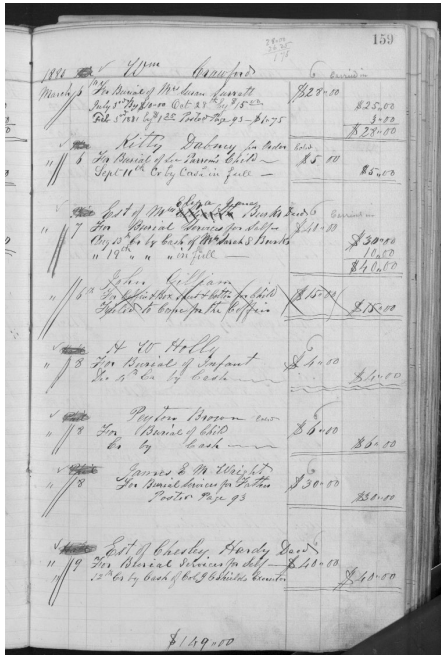 159
1880 Wm Crawford
March 5 For Burial of Mrs Susan Garrett $28.00
July 3rd By $10.00 Oct 28th by $15.00 $25.00
Feb 5th 1881 by Posted Page 93 3.00
$28.00
Kitty Dabney
" 6 For Burial of Child $5.00
Sept 11th Cr by Cash in full $5.00
Est of Mrs Eliza Burks Decd
" 7 For Burial Services for Self $40.00
Cr by Cash of Mrs Sarah E Burks $30.00
" 19th " " in full 10.00
$40.00
John Gilliam
" 6th For Coffin for Child $15.00
Failed to Come for the Coffin $15.00
H W Holly
" 8 For Burial of Infant $4.00
Cr by Cash $4.00
Peyton Brown
" 8 For Burial of Child $6.00
Cr by Cash $6.00
James E M Wright
" 8 For Burial Services for Father $30.00
Posted Page 93 $30.00
Est of Chesley Hardy Decd
" 9 For Burial Services for Self $40.00
Cr by Cash of Executor $40.00
$149.00